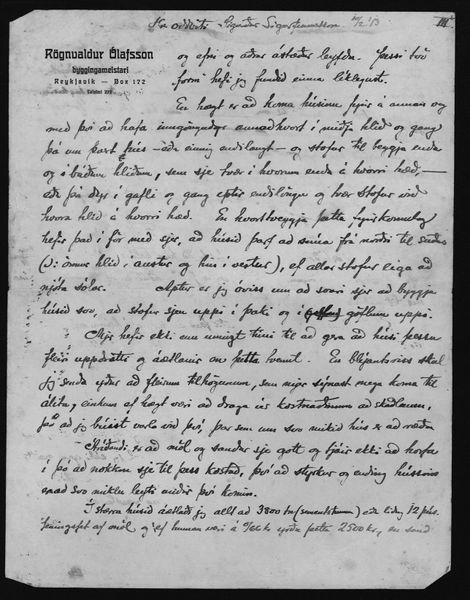 Hr. oddviti Sigurður Sigurfinnsson 4/2 '13
III.
Rögnvaldur Ólafsson
byggingameistari
Reykjavík — Box 172
Talsími 277
og efni og aðrar ástæður leyfðu. Þessi tvö
form hefi jeg fundið einna líklegust.
En hægt er að koma húsinu fyrir á annan veg
með því að hafa innganginn annaðhvort í miðja hlið og gang
þá um þvert hús — eða einnig endilangt — og stofur til beggja enda
og í báðum hliðum, sem sje tvær í hvorum enda á hvorri hæð, —
eða þá dyr í gafli og gang eptir endilöngu og tvær stofur við
hvora hlið á hvorri hæð. En hvorttveggja þetta fyrirkomulag
hefir það í för með sjer, að húsið þarf að snúa frá norðri til suðurs
(ɔ: önnur hlið í austur og hin í vestur), ef allar stofur eiga að
njóta sólar. Aptur er jeg óviss um að svari sjer að byggja
húsið svo, að stofur sjeu uppi í þaki og í göflum uppi.
Mjer hefir ekki unnist tími til að gera að þessu
fleiri uppdrætti og áætlanir um þetta hvamt. En blýantsriss skal
jeg senda yður að fleirum tilhögunum, sem mjer sýnast mega koma til
álita, einkum ef hægt væri að draga úr kostnaðinum að skaðlausu,
þó að jeg búist varla við því, þar sem um svo mikið hús er að ræða.
Áríðandi er að möl og sandur sje gott og tjáir ekki að horfa
í þó að nokkru sje til þess kostað, því að styrkur og ending hússins
er að svo miklu leyti undir því komin.
Í stærra húsið áætlaði jeg allt að 3800 tn (sementstunnum) eða liðug 12 þús.
teningsfet af möl og ef tunnan væri á yrði þetta 2500 kr., en sand